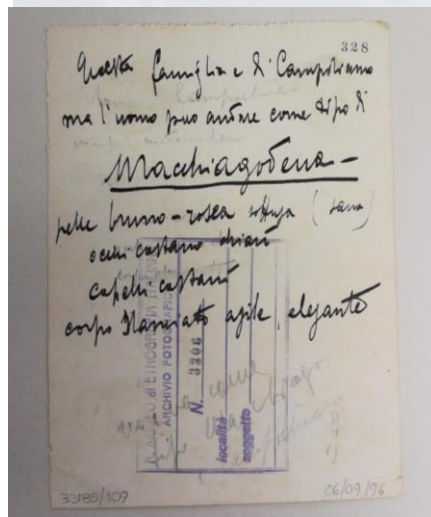 328
Questa famiglia e di Campolieto
ma l'uomo puo andare come tipo di
Macchiagodena –
pelle bruno-rosea soffusa (sana)
occhi castano chiari
capelli castani
corpo slanciato agile, elegante
MUSEO di ETNOGRAFIA ITALIANA
ARCHIVIO FOTOGRAFICO
N. 3306
località
soggetto
come
33185/109
06/09/96